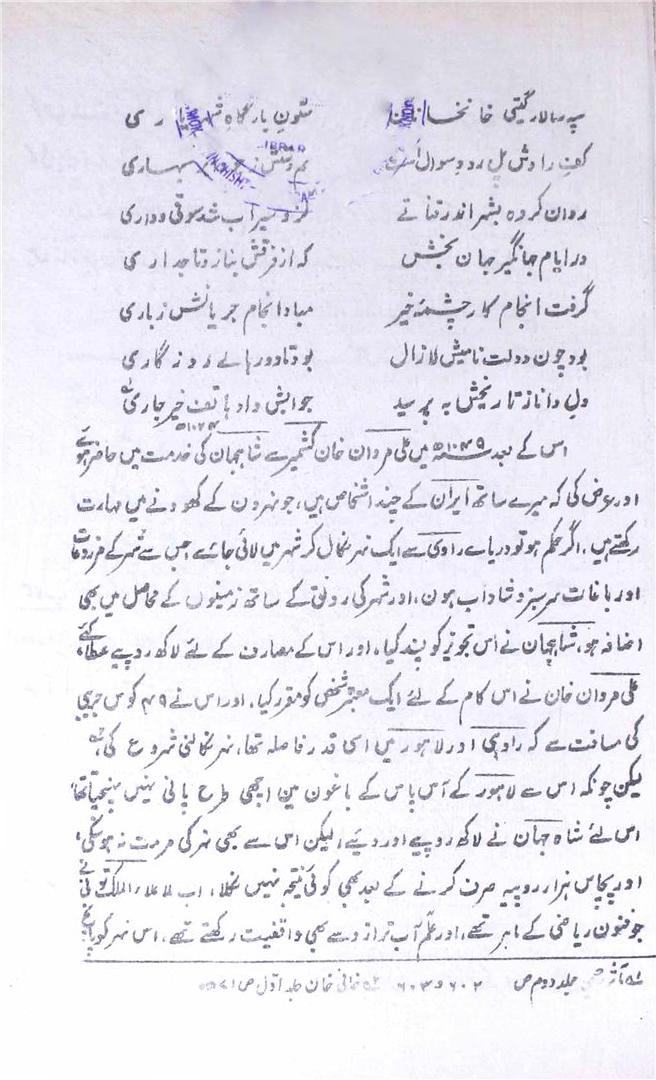 سپہ سالار گیتی خانخاناں ستونِ بارگاہِ شہر یاری
کفِ رادش پل رود سوال است
روان کردہ بشہر اندر قناتے آب شد سوقی و داری
در ایام جہانگیر جہان بخش کہ از فرقش بنازد تاجداری
گرفت انجام کار چشمۂ خیر مبادا انجام جریانش ز باری
بود چون دولت نامیش لازال بود تا دورہائے روزگاری
دلِ دانا ز تاریخش بپرسید جوابش داد ہاتف خیر جاری
۱۰۲۴ھ
اس کے بعد ۱۰۴۹ھ میں علی مردان خان کشمیر سے شاہجہان کی خدمت میں حاضر ہوئے
اور عرض کی کہ میرے ساتھ ایران کے چند اشخاص ہیں، جو نہرون کے کھودنے میں مہارت
رکھتے ہیں، اگر حکم ہو تو دریاے راوی سے ایک نہر نکال کر شہر میں لائی جائے، جس سے شہر کے مزروعات
اور باغات سرسبز و شاداب ہون، اور شہر کی رونق کے ساتھ زمینوں کے محاصل میں بھی
اضافہ ہو، شاہجہان نے اس تجویز کو پسند کیا، اور اس کے مصارف کے لئے لاکھ روپیے عطا کئے،
علی مردان خان نے اس کام کے لئے ایک معتبر شخص کو مقرر کیا، اور اس نے ۴۹ کوس جریبی
کی مسافت سے کہ راوی اور لاہور میں اسی قدر فاصلہ تھا، نہر نکالنی شروع کی،
لیکن چونکہ اس سے لاہور کے آس پاس کے باغون مین اچھی طرح پانی نہیں پہنچتا تھا،
اس لئے شاہ جہان نے لاکھ روپیے اور دیئے، لیکن اس سے بھی نہر کی مرمت نہ ہو سکی،
اور پچاس ہزار روپیہ صرف کرنے کے بعد بھی کوئی نتیجہ نہیں نکلا، اب ملا علاء الملک تونی نے
جو فنون ریاضی کے ماہر تھے، اور علم آب ترازو سے بھی واقفیت رکھتے تھے، اس نہر کو پانچ
مآثر رحیمی جلد دوم ص ۶۰۲ و ۶۰۳ خافی خان جلد اوّل ص